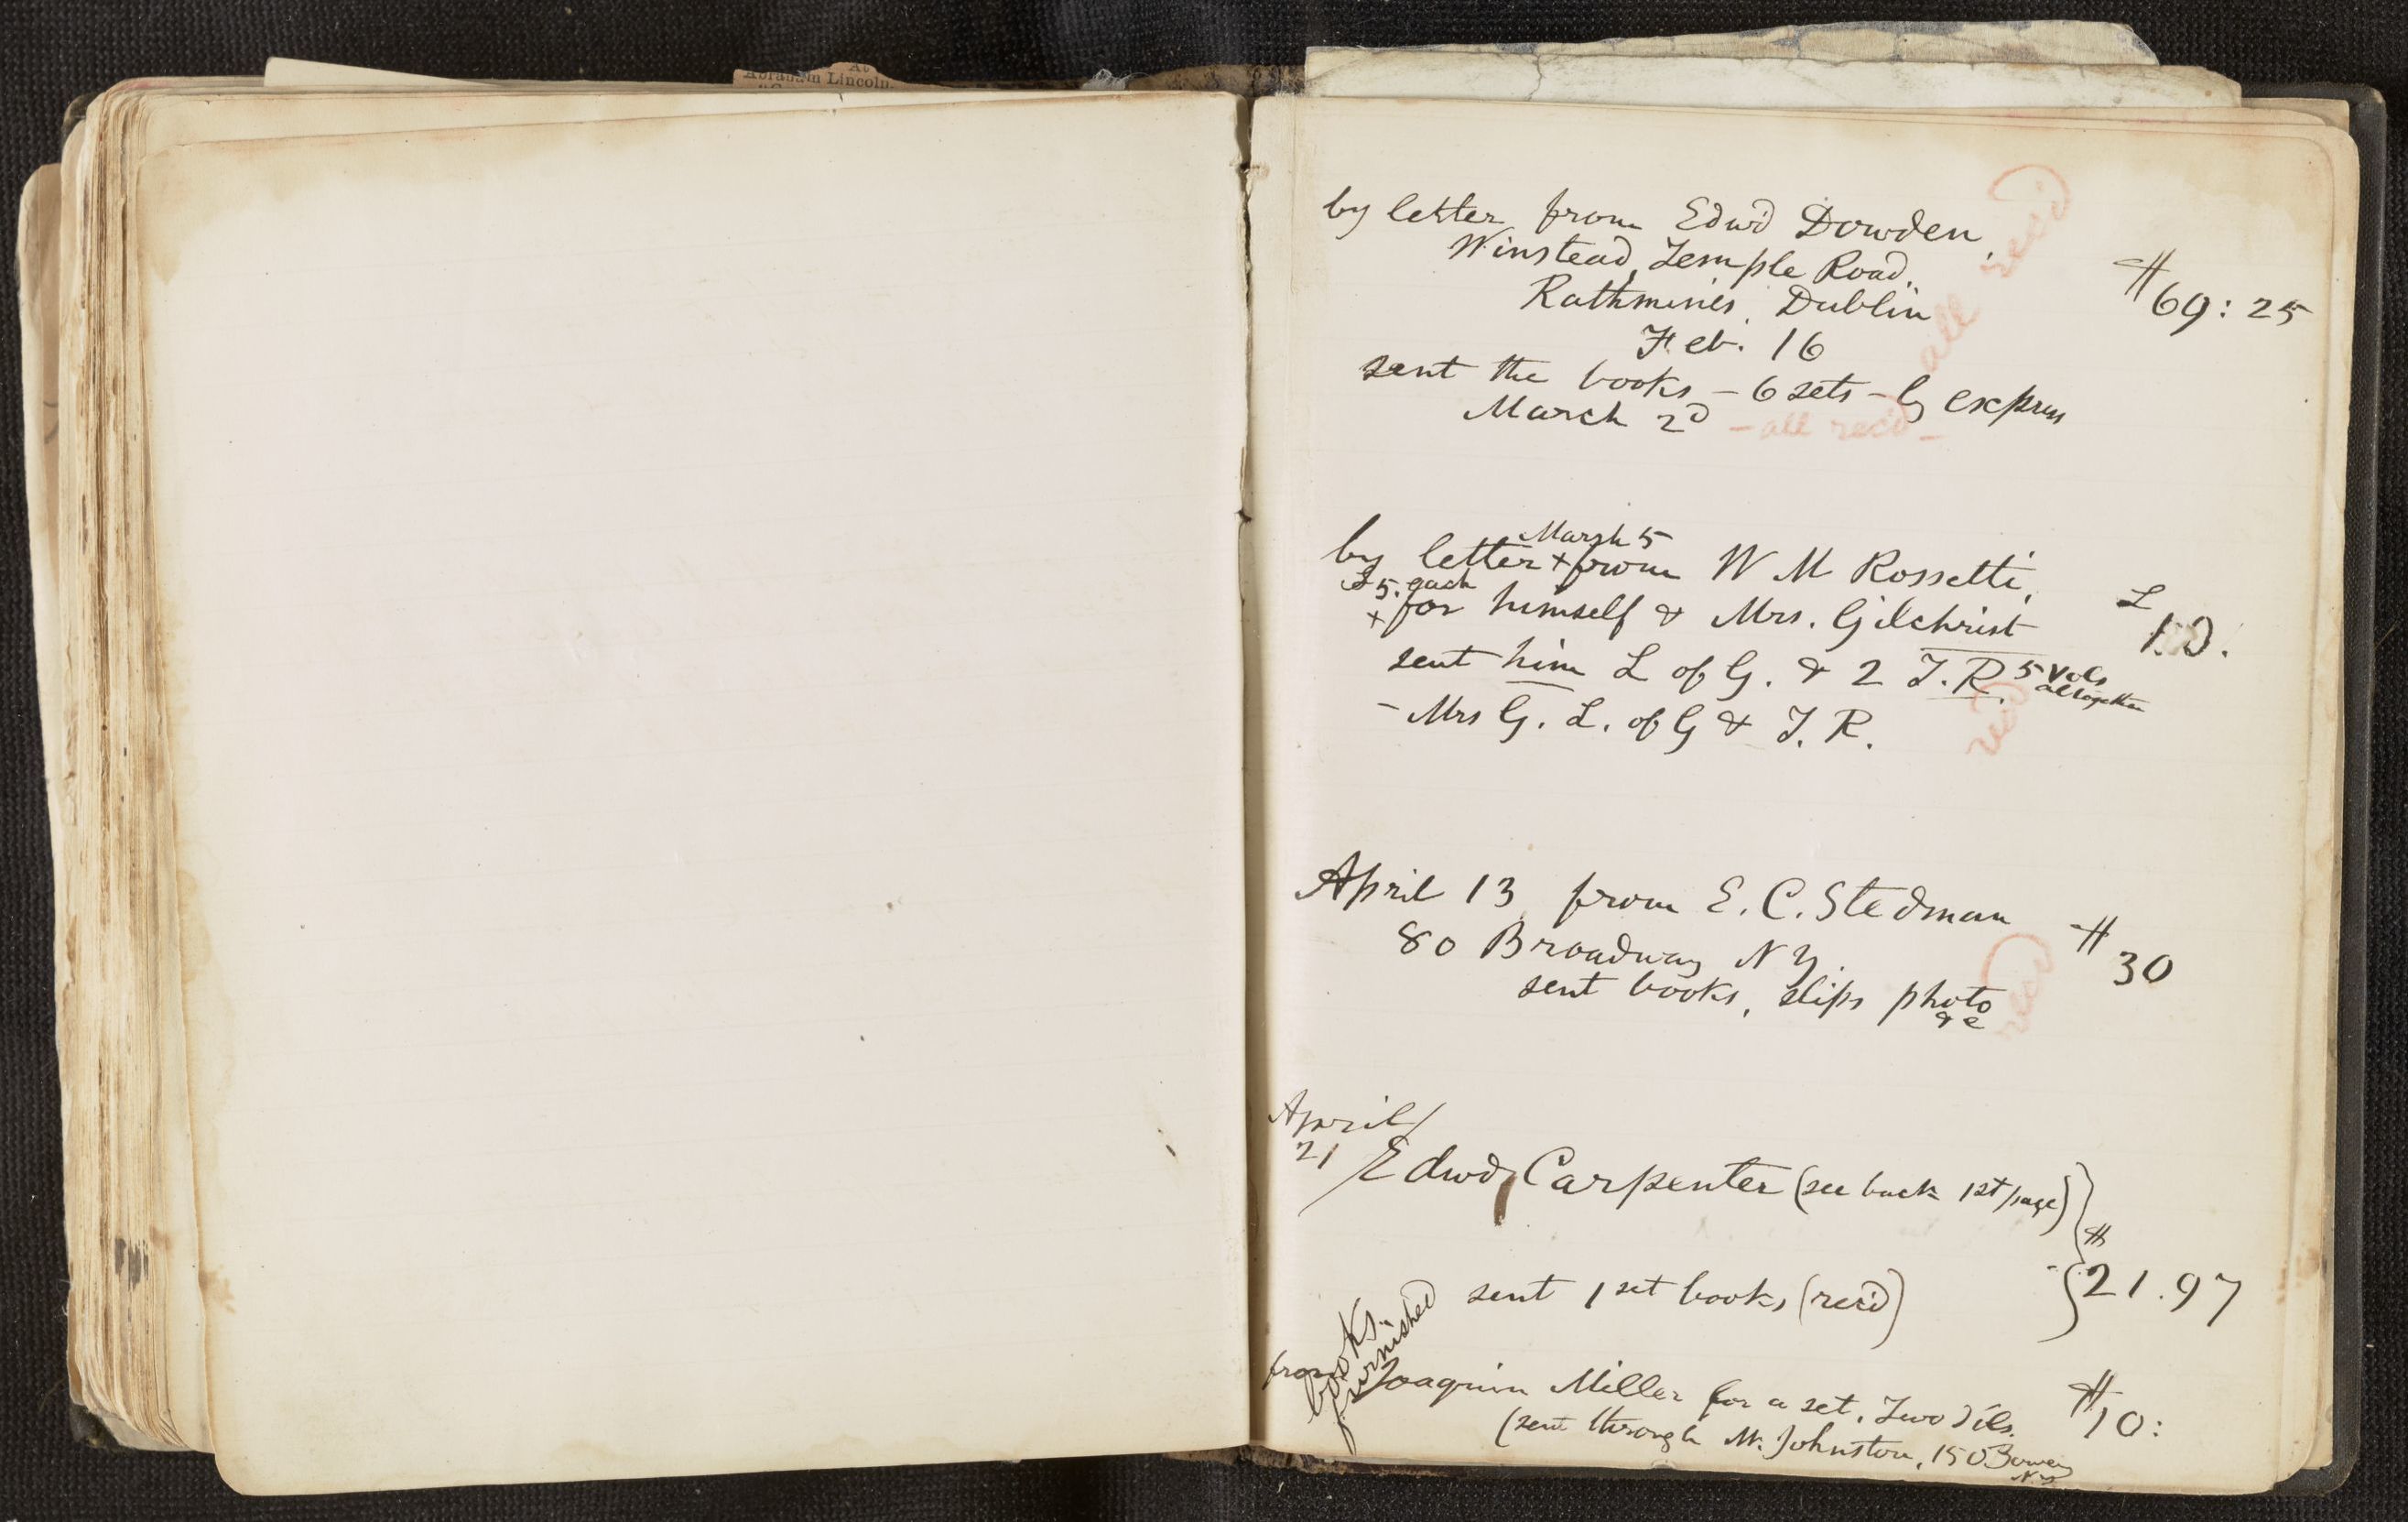 At
Abraham Lincoln.
by letter from Edwd Dowden,
Winstead, Temple Road,
Rathmines, Dublin
$69:25
Feb. 16
all rec'd
sent the books – 6 sets – by express
March 2d – all rec'd –
March 5
by letter + from W M Rossetti,
£5. each
+ for himself & Mrs. Gilchrist
£10.
sent him L of G. & 2 T.R. 5 Vols
altogether
– Mrs G. L. of G & T. R.
rec'd
April 13 from E. C. Stedman
$30
80 Broadway N Y.
sent books, slips photo
&c
rec'd
April
21 Edwd Carpenter (see back 1st page)
$21.97
sent 1 set books (rec'd)
books
furnished
from Joaquin Miller for a set, Two Vols.
$10:
(sent through Mr. Johnston, 150 Bowery
N Y